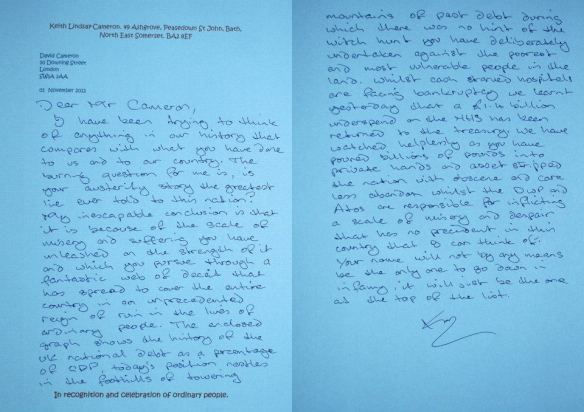 Keith Lindsay Cameron, 49 Ashgrove, Peasedown St John, Bath,
North East Somerset, BA2 8EF
David Cameron
10 Downing Street
London
SW1A 2AA
01 November 2011
Dear Mr Cameron,
I have been trying to think
of anything in our history that
compares with what you have done
to us and to our country. The
burning question for me is, is
your austerity story the greatest
lie ever told to this nation?
My inescapable conclusion is that
it is because of the scale of
misery and suffering you have
unleashed on the strength of it
and which you pursue through a
fantastic web of deceit that
has spread to cover the entire
country in an unprecedented
reign of ruin in the lives of
ordinary people. The enclosed
graph shows the history of the
UK national debt as a percentage
of GDP, today's position nestles
in the foothills of towering
In recognition and celebration of ordinary people.
mountains of past debt during
which there was no hint of the
witch hunt you have deliberately
undertaken against the poorest
and most vulnerable people in the
land. Whilst cash starved hospitals
are facing bankruptcy we learnt
yesterday that a billion
underspend on the NHS has been
returned to the treasury. We have
watched, helplessly as you have
poured billions of pounds into
private hands and asset stripped
the nation with obscene and care
less abandon whilst the DWP and
Atos are responsible for inflicting
a scale of misery and despair
that has no precedent in this
country that I can think of.
Your name will not by any means
be the only one to go down in
infamy, it will just be the one
at the top of the list.